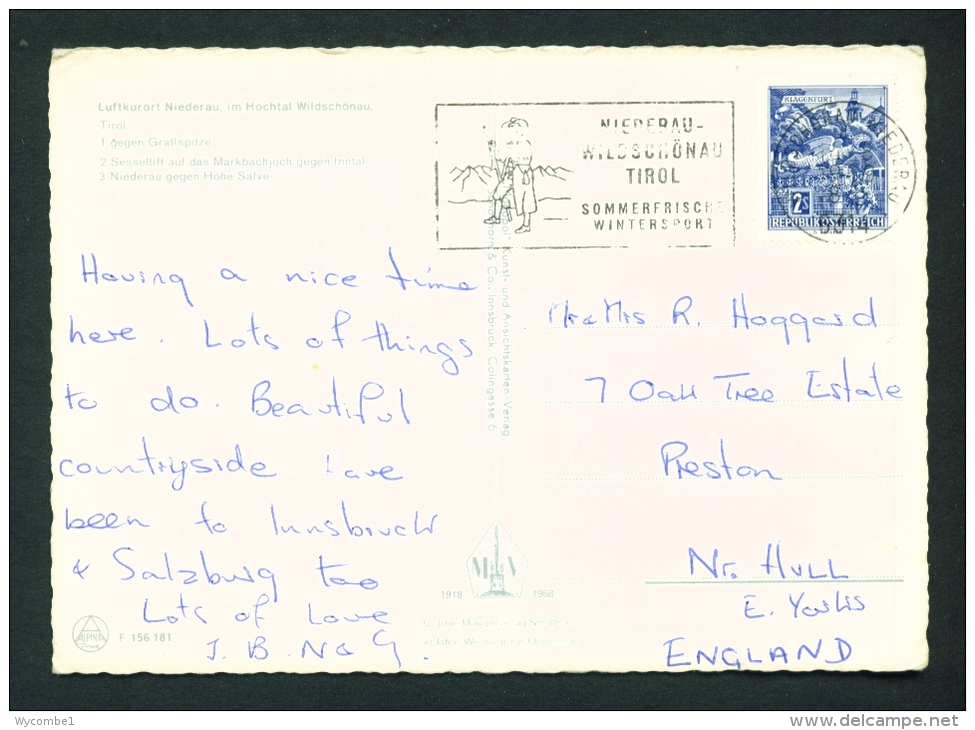 Luftkurort Niederau, im Hochtal Wildschönau,
Tirol
1 gegen Gratlspitze
2 Sessellift auf das Markbachjoch gegen Inntal
3 Niederau gegen Hohe Salve
NIEDERAU-
WILDSCHÖNAU
TIROL
SOMMERFRISCHE
WINTERSPORT
KLAGENFURT
2S
REPUBLIK ÖSTERREICH
NIEDERAU
6314
Having a nice time
here. Lots of things
to do. Beautiful
countryside have
been to Innsbruck
& Salzburg too
Lots of Love
J. B. N & G.
Kunst- und Ansichtskarten-Verlag
& Co., Innsbruck, Colingasse 6
Mr & Mrs R. Hoggard
7 Oak Tree Estate
Preston
Nr. HULL
E. Yorks
ENGLAND
M V
1918 1968
ALPINA
F 156 181
Wycombe1
www.delcampe.net